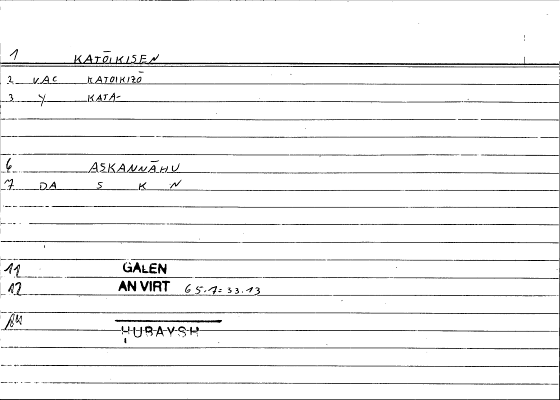 1 KATŌIKISEN
2 VAC KATOIKIZŌ
3 Y KATA-
6 ASKANNĀHU
7 DA S K N
11 GALEN
12 AN VIRT 65.7=33.13
HUBAYSH